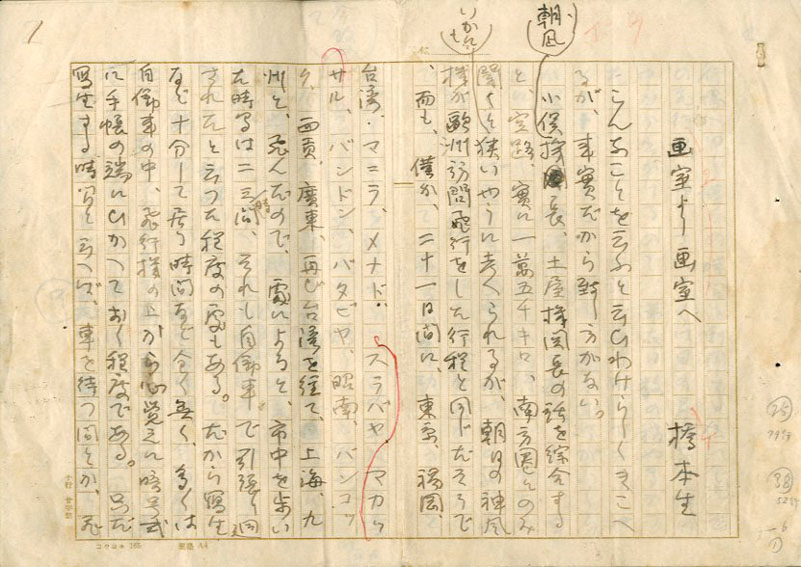 1
画室より画室へ
橋本生
こんなことを云ふと云ひわけらしくきこへ
るが、事実だから致し方がない。
朝凪
小俣機長、土屋機関長の話を綜合する
と空路 実に一萬五千キロ、南方圏とのみ
聞くと狭いやうに考へられるが、朝日の神風
いかにも
機が歐洲訪問飛行をした行程と同じださうで
、而も、僅か、二十一日間に、東京、福岡、
台湾、マニラ、メナド、スラバヤ、マカッ
サル、バンドン、バタビヤ、昭南、バンコッ
ク、西貢、廣東、再び台湾を経て、上海、九
州と、飛んだので、處によると、市中を歩い
た時間は二三時間、それも自働車で引張り廻
されたと云つた程度の處もある。だから写生
など十分して居る時間など全く無く、多くは
自働車の中、飛行機の上から心覚えに暗号式
に手帳の端にひかへておく程度である。只だ
写生する時間と云へば、車を待つ間とか、飛